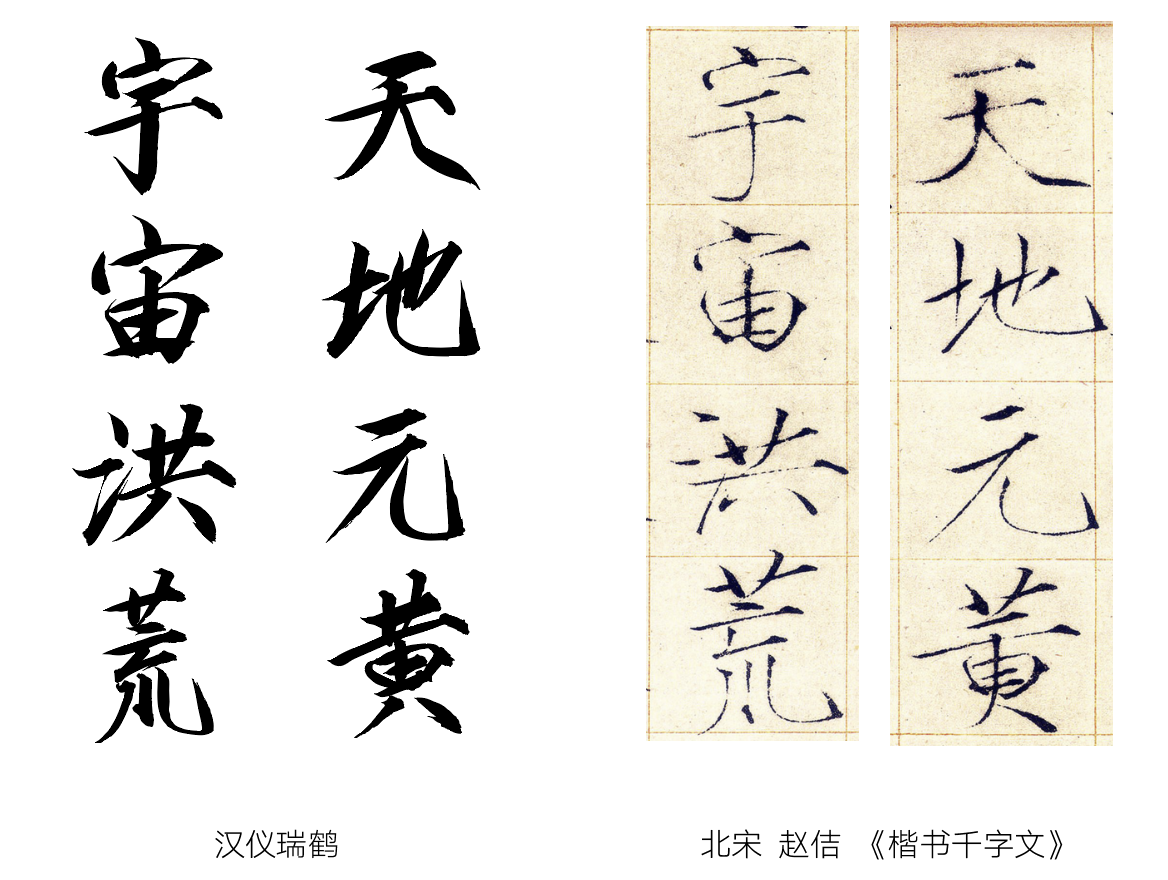 天地元黄
宇宙洪荒
天地元黄
宇宙洪荒
汉仪瑞鹤
北宋 赵佶 《楷书千字文》